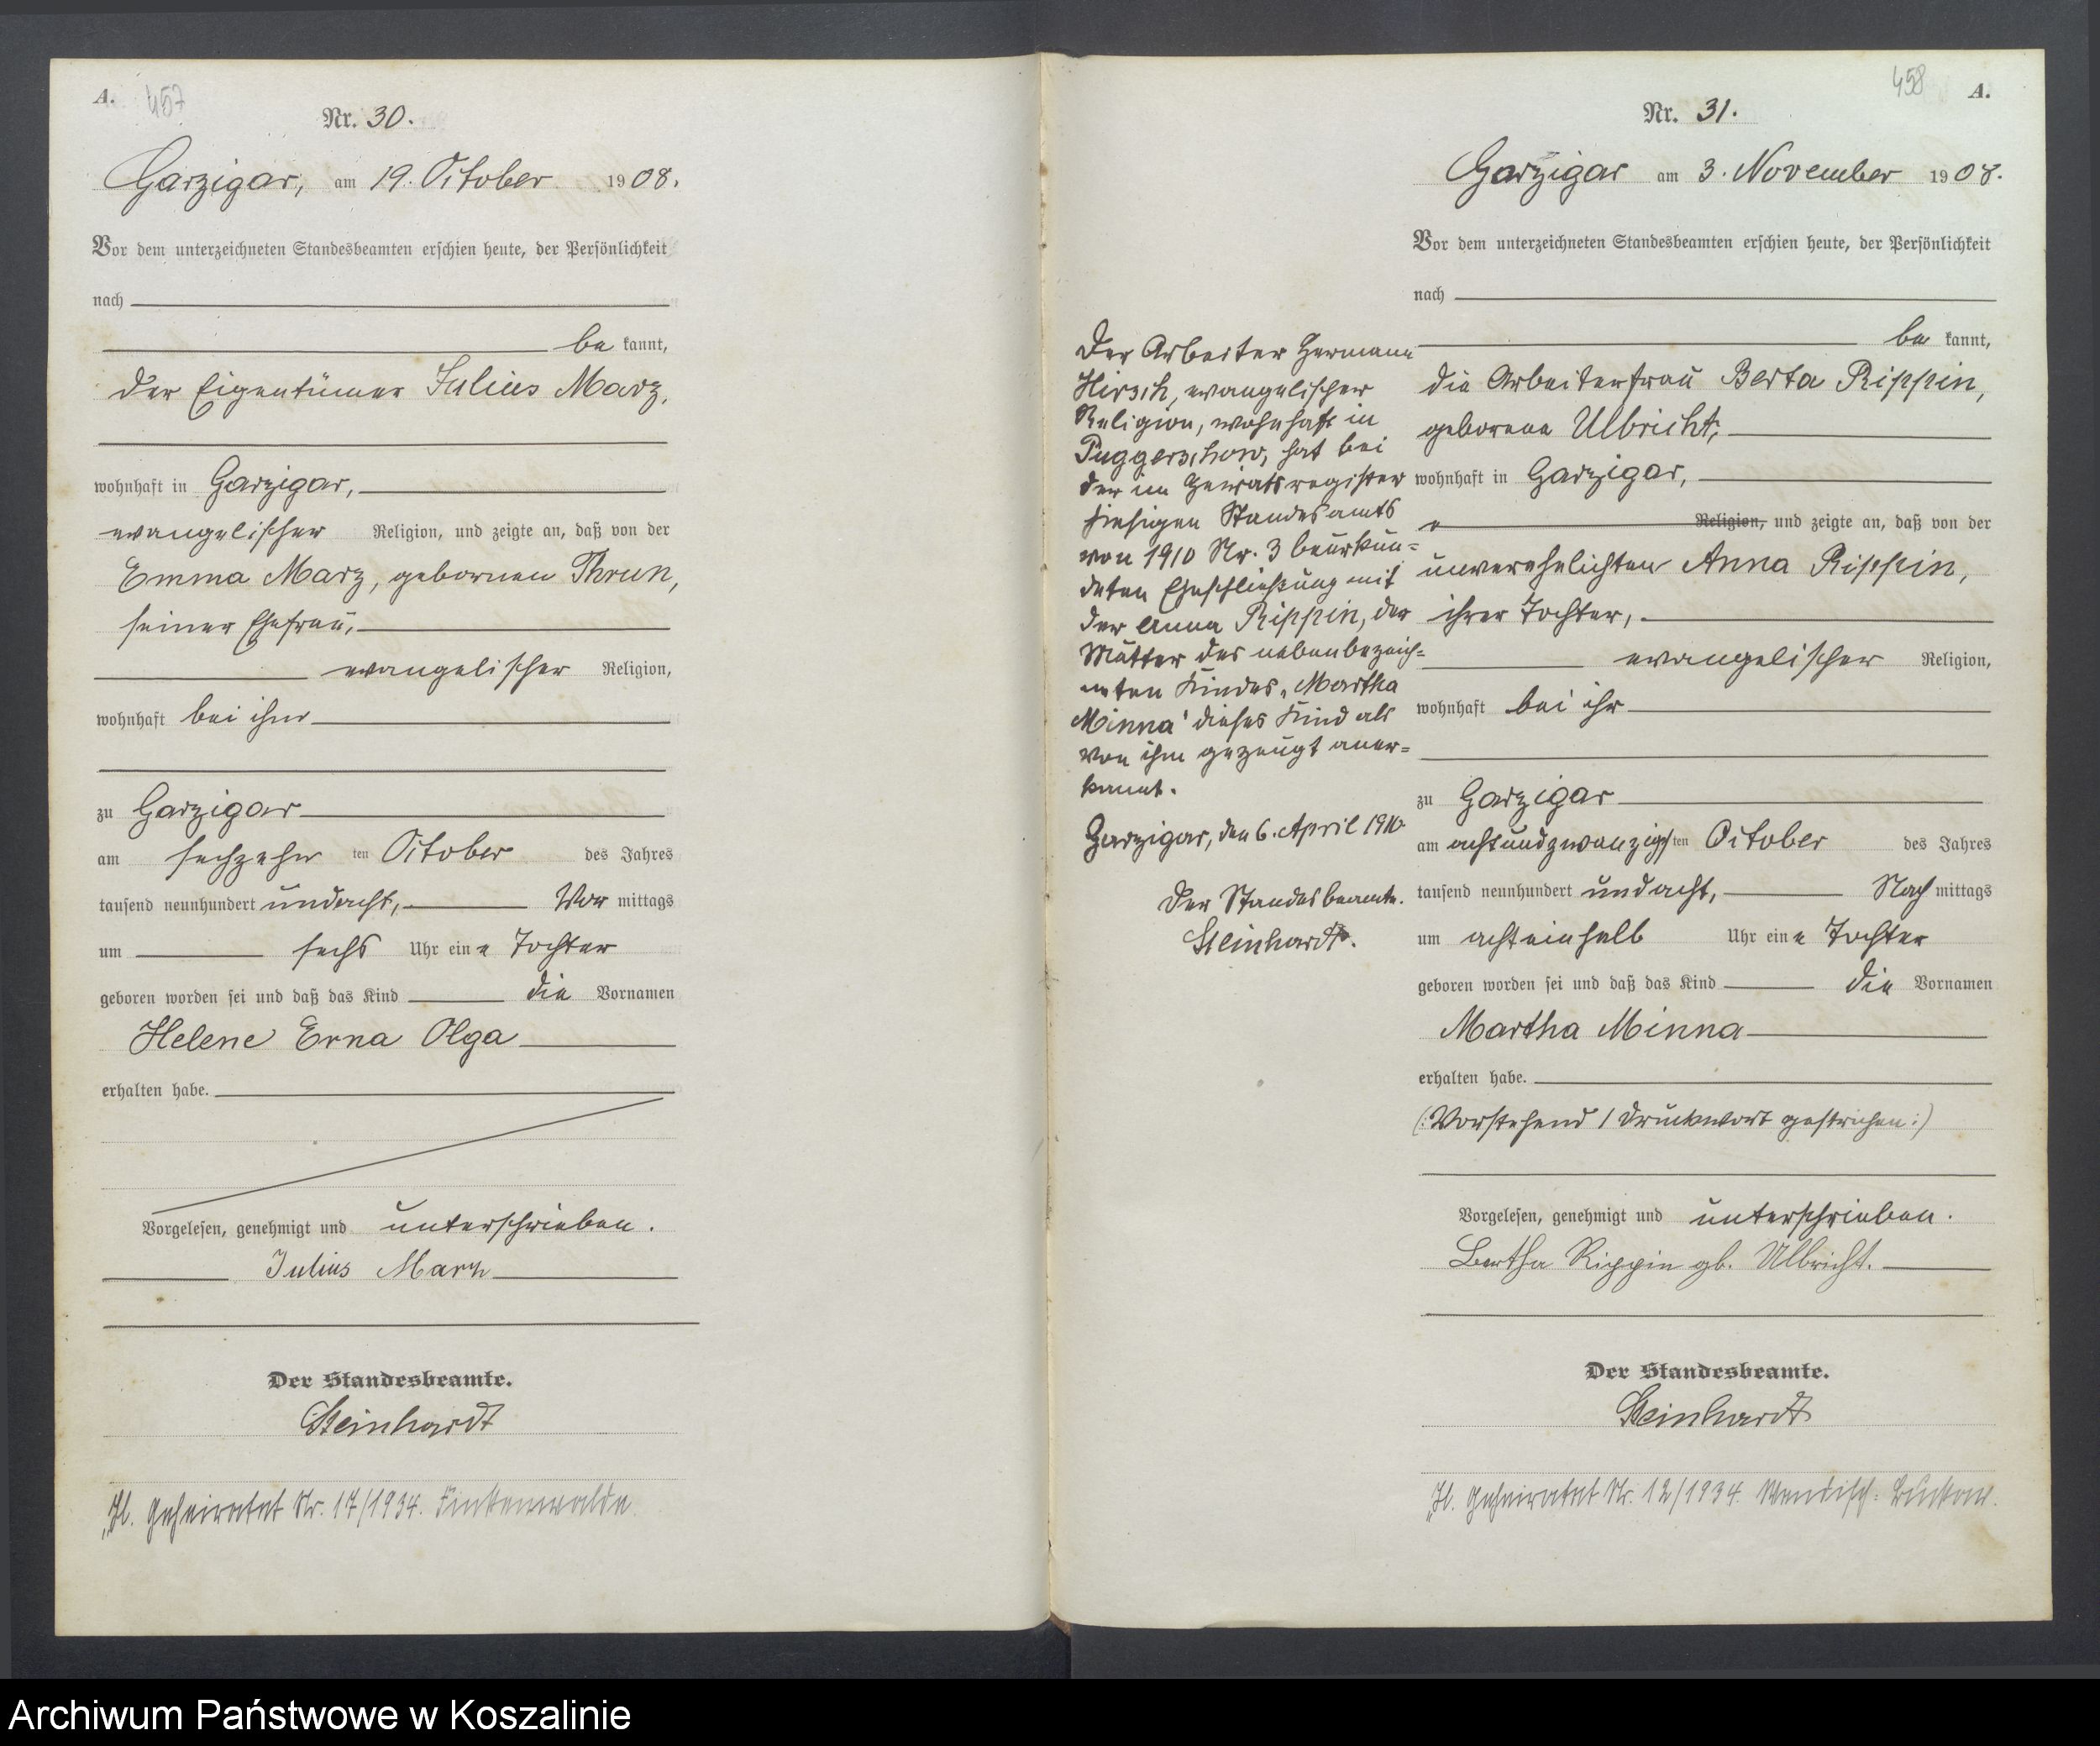 A. 457
Nr. 30.
Garzigar, am 19. October 1908.
Vor dem unterzeichneten Standesbeamten erschien heute, der Persönlichkeit
nach
be kannt,
der Eigentümer Julius Marz,
wohnhaft in Garzigar,
evangelischer Religion, und zeigte an, daß von der
Emma Marz, geborenen Thrun,
seiner Ehefrau,
evangelischer Religion,
wohnhaft bei ihm
zu Garzigar
am sechzehn ten October des Jahres
tausend neunhundert undacht, Vor mittags
um sechs Uhr ein e Tochter
geboren worden sei und daß das Kind die Vornamen
Helene Erna Olga
erhalten habe.
Vorgelesen, genehmigt und unterschrieben.
Julius Marz
Der Standesbeamte.
Steinhardt
"H. geheiratet Nr. 17/1934. Finkenwalde.
458 A.
Nr. 31.
Garzigar am 3. November 1908.
Vor dem unterzeichneten Standesbeamten erschien heute, der Persönlichkeit
nach
be kannt,
die Arbeiterfrau Berta Rippin,
geborene Ulbricht,
wohnhaft in Garzigar,
Religion, und zeigte an, daß von der
unverehelichten Anna Rippin,
ihrer Tochter,
evangelischer Religion,
wohnhaft bei ihr
zu Garzigar
am achtundzwanzigsten October des Jahres
tausend neunhundert undacht, Nach mittags
um achteinhalb Uhr ein e Tochter
geboren worden sei und daß das Kind die Vornamen
Martha Minna
erhalten habe.
(:Vorstehend 1 Druckwort gestrichen:)
Vorgelesen, genehmigt und unterschrieben.
Bertha Rippin gb. Ulbricht.
Der Standesbeamte.
Steinhardt
"H. geheiratet Nr. 12/1934. Wendisch-Buckow.
Der Arbeiter Hermann
Hirsch, evangelischer
Religion, wohnhaft in
Puggerschow, hat bei
der im Heiratsregister
hiesigen Standesamts
von 1910 Nr. 3 beurkun=
deten Eheschließung mit
der Anna Rippin, der
Mutter des nebenbezeich=
neten Kindes „Martha
Minna" dieses Kind als
von ihm gezeugt aner=
kannt.
Garzigar, den 6. April 1910
Der Standesbeamte.
Steinhardt.
Archiwum Państwowe w Koszalinie